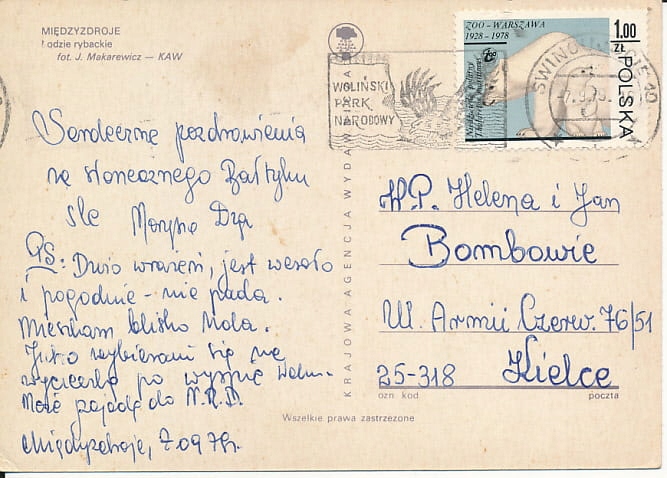 MIĘDZYZDROJE
Łodzie rybackie
fot. J. Makarewicz — KAW
Serdeczne pozdrowienia
ze słonecznego Bałtyku
śle Maryna
PS: Dużo wrażeń, jest wesoło
i pogodnie - nie pada.
Mieszkam blisko Mola.
Jutro wybieram się na
wycieczkę po wyspie Wolin.
Może zajadę do N.R.D.
Międzyzdroje, 7.09 79r.
KRAJOWA AGENCJA WYDAWNICZA
WOLIŃSKI
PARK
NARODOWY
ZOO - WARSZAWA
1928 - 1978
1.00
ZŁ
POLSKA
Niedźwiedź polarny
Thalarctos maritimus
ŚWINOUJŚCIE 10
W.P. Helena i Jan
Bombowie
Ul. Armii Czerw. 76/51
25-318 Kielce
ozn kod poczta
Wszelkie prawa zastrzeżone